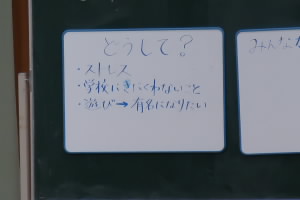 どうして?
・ストレス
・学校にきにくわないこと
・遊び→有名になりたい
みんなが